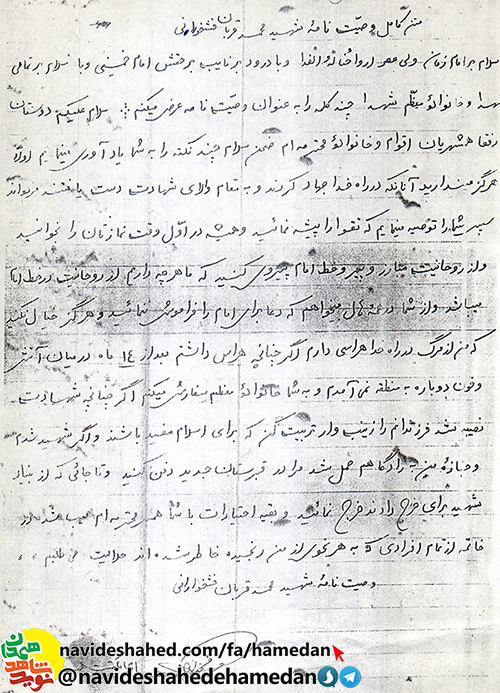 متن کامل وصیت نامهٔ شهید محمد قربان فتخوارانی
سلام بر امام زمان ولی عصر ارواحنا له الفدا و با درود بر نایب برحقش امام خمینی و با سلام بر تمامی
شهدا و خانوادهٔ معظم شهدا چند کلمه را به عنوان وصیت نامه عرض میکنم سلام علیکم دوستان
رفقا همشهریان اقوام و خانوادهٔ محترمه ام ضمن سلام چند نکته را به شما یادآوری مینمایم اولاً
هرگز مپندارید آنانکه در راه خدا جهاد کردند و به مقام والای شهادت دست یافتند مرده‌اند
سپس شما را توصیه مینمایم که تقوا را پیشه نمائید و همیشه در اوّل وقت نمازتان را بخوانید
و از روحانیت مبارز و پیرو خط امام پیروی کنید که ما هرچه داریم از روحانیت در خط امام
میباشد و از شما در همه حال میخواهم که دعا برای امام را فراموش ننمائید و هرگز خیال نکنید
که من از مرگ در راه خدا هراسی دارم اگر چنانچه هراس داشتم بعد از ۱۴ ماه در میان آتش
و خون دوباره به منطقه نمی آمدم و به شما خانوادهٔ معظم سفارش میکنم اگر چنانچه شهادت
نصیبم شد فرزندانم را زینب وار تربیت کن که برای اسلام مفید باشند و اگر شهید شدم
و جنازهٔ من به زادگاهم حمل شد مرا در قبرستان جدید دفن کنید و تا جائی که از بنیاد
شهید برای خرج دادند خرج نمائید و بقیه اختیارات با شما همسر محترمه ام میباشد در
خاتمه از تمام افرادی که به هر نحوی از من رنجیده خاطر شده اند حلالیت می طلبم
وصیت نامهٔ شهید محمد قربان فتخوارانی
نوید شاهد همدان
navideshahed.com/fa/hamedan
@navideshahedehamedan